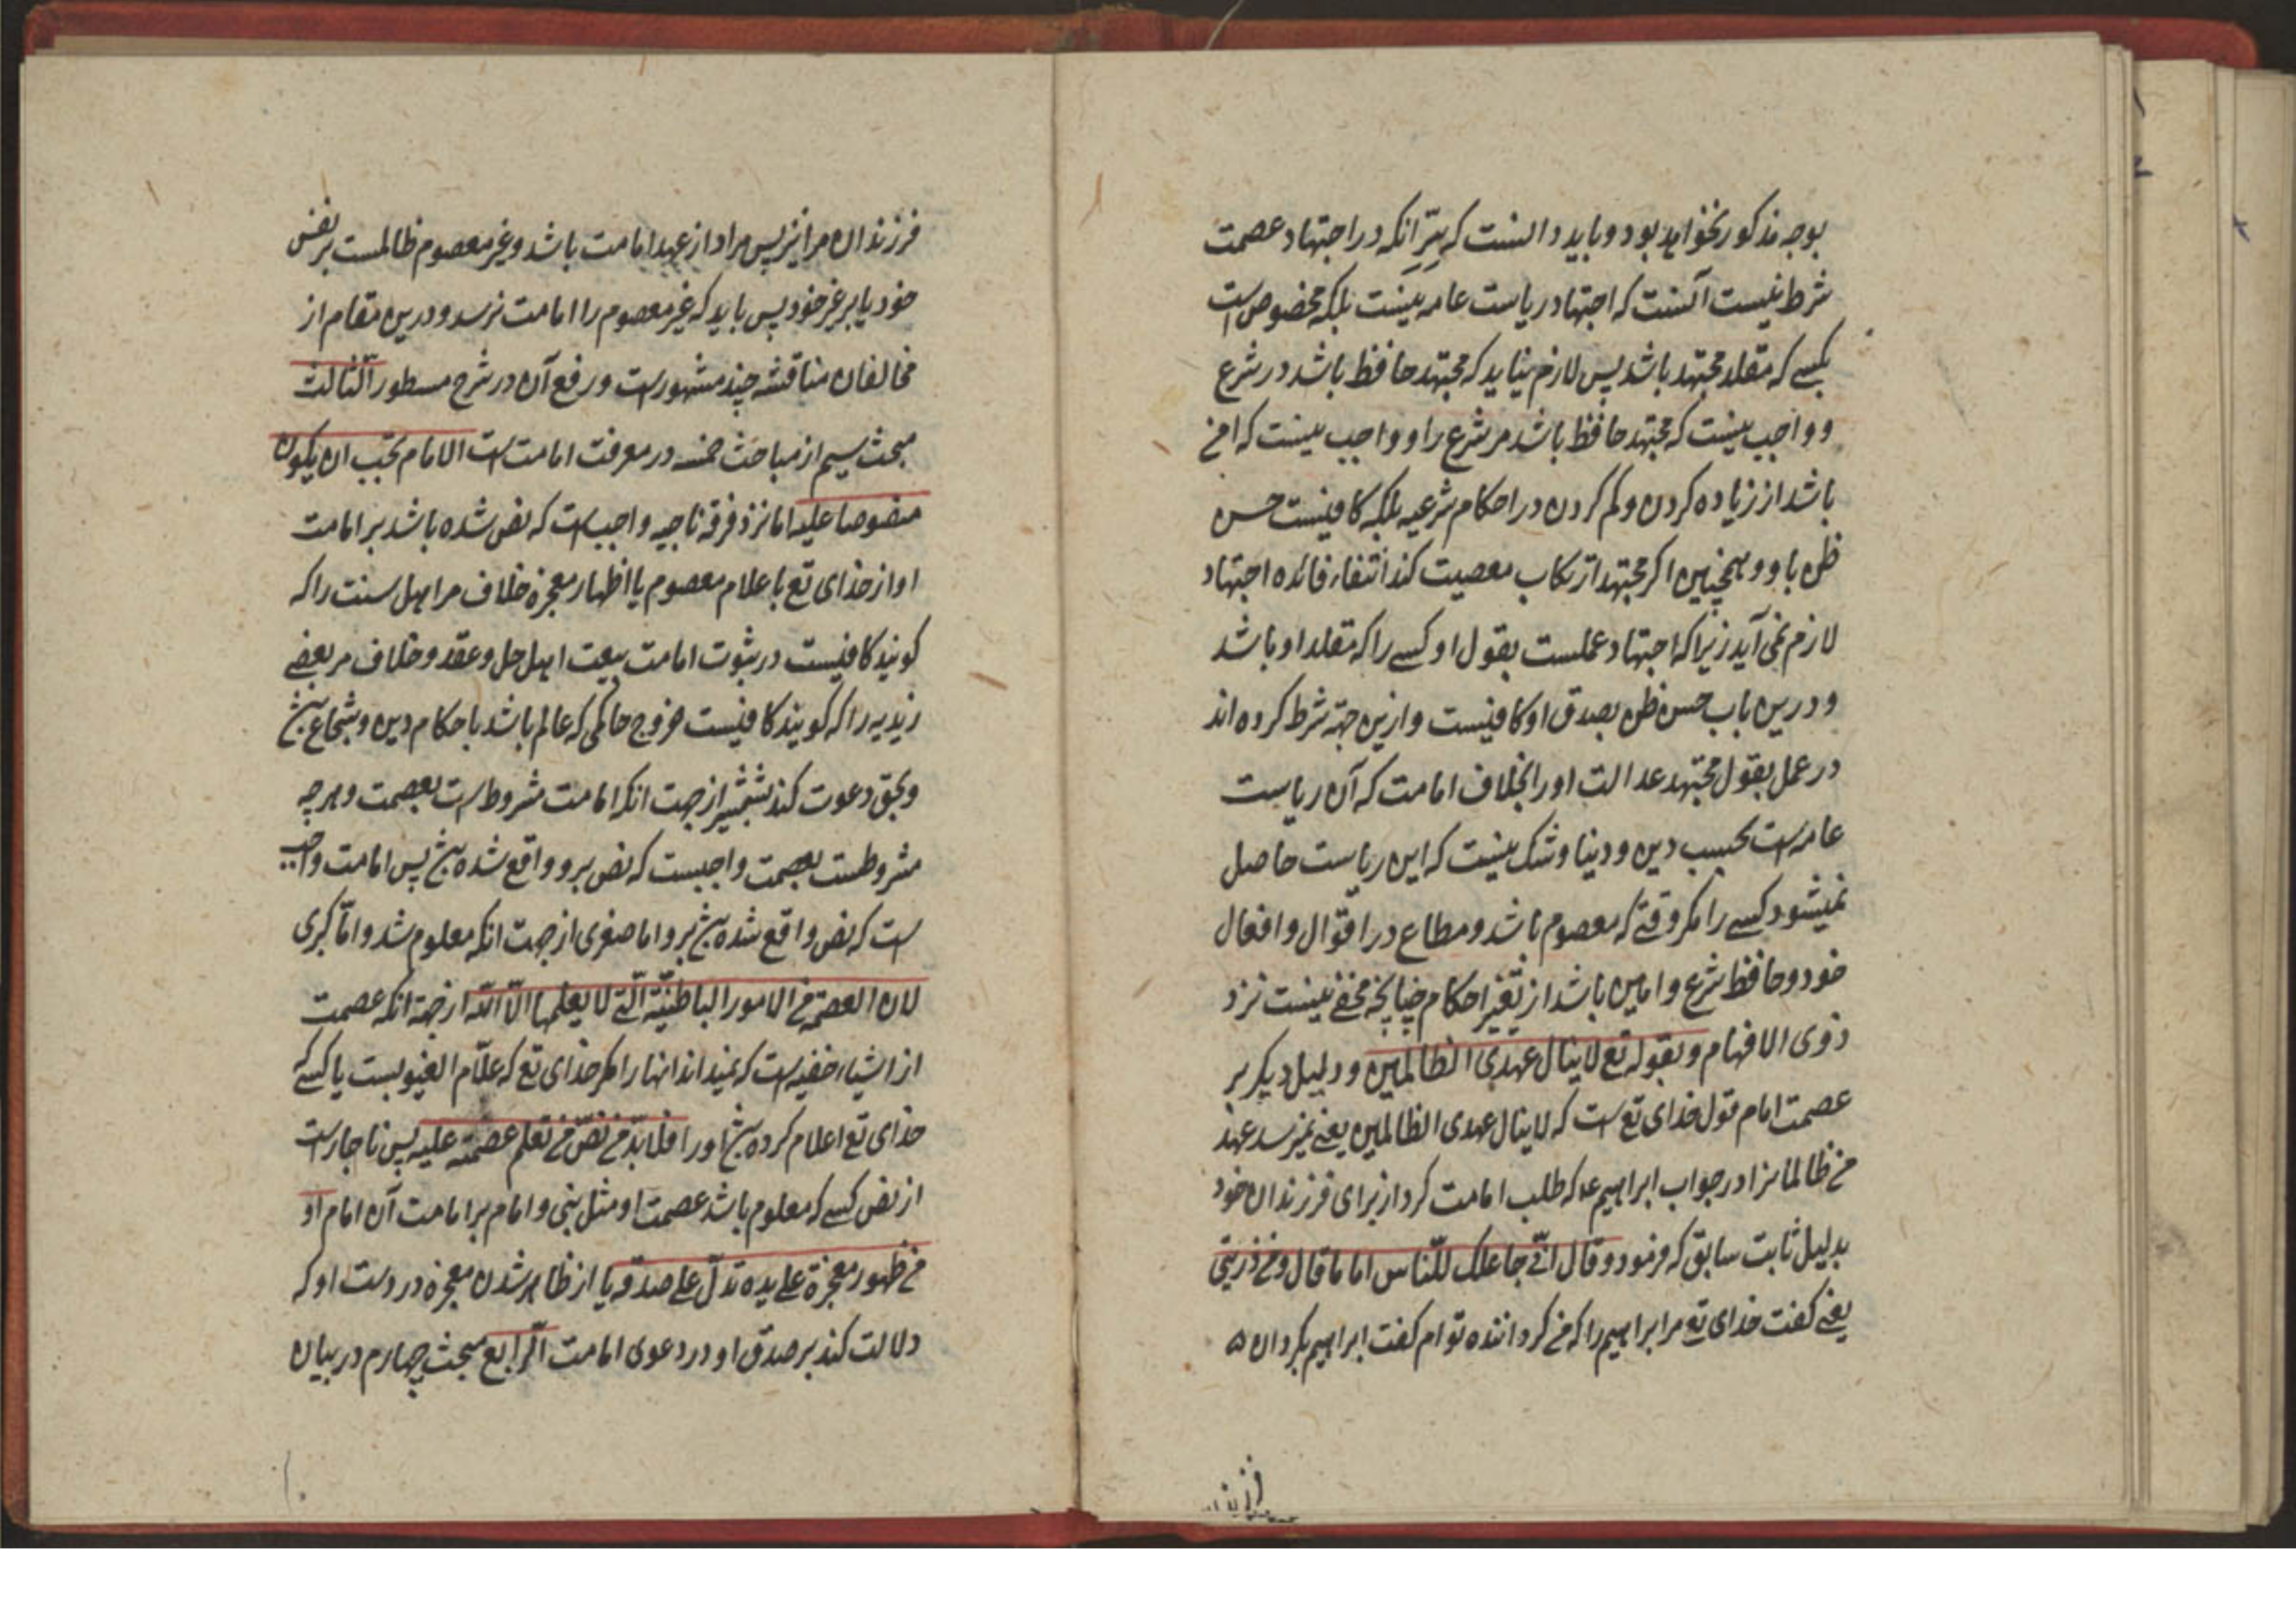 بوجه مذکور نخواهد بود و باید دانست که سِرّ انکه در اجتهاد عصمت
شرط نیست آنست که اجتهاد ریاست عامه نیست بلکه مخصوص است
بکسے که مقلد مجتهد باشد پس لازم نیاید که مجتهد حافظ باشد در شرع
و واجب نیست که مجتهد حافظ باشد مر شرع را و واجب نیست که امن
باشد از زیاده کردن و کم کردن در احکام شرعیه بلکه کافیست حسن
ظن باو و همچنین اکر مجتهد ارتکاب معصیت کند انتفاء فائده اجتهاد
لازم نمی آید زیرا که اجتهاد عملست بقول او کسے را که مقلد او باشد
و درین باب حسن ظن بصدق او کافیست و ازین جهة شرط کرده اند
در عمل بقول مجتهد عدالت او را بخلاف امامت که آن ریاست
عامه است بحسب دین و دنیا و شک نیست که این ریاست حاصل
نمیشود کسے را مکر وقتے که معصوم باشد و مطاع در اقوال و افعال
خود و حافظ شرع و امین باشد از تغیر احکام چنانچه مخفے نیست نزد
ذوی الافهام و بقوله تع لا ینال عهدی الظالمین و دلیل دیکر بر
عصمت امام قول خدای تع است که لا ینال عهدی الظالمین یعنے نمیرسد عهد
من ظالمانرا در جواب ابراهیم ع که طلب امامت کرد از برای فرزندان خود
بدلیل ثابت سابق که فرمود و قال انّے جاعلک للنّاس اماما قال و من ذریتی
یعنے کفت خدای تع مر ابراهیم را که من کرداننده توام کفت ابراهیم بکردان
فرزندان مرا نیز پس مراد از عهد امامت باشد و غیر معصوم ظالمست بر نفس
خود یا بر غیر خود پس باید که غیر معصوم را امامت نرسد و درین مقام از
مخالفان مناقشه چند مشهور است و رفع آن در شرح مسطور الثالث
مبحث سیم از مباحث خمسه در معرفت امامت است الامام یجب ان یکون
منصوصا علیه اما نزد فرقه ناجیه واجب است که نص شده باشد بر امامت
او از خدای تع باعلام معصوم یا اظهار معجزه خلاف مر اهل سنت را که
کویند کافیست در ثبوت امامت بیعت اهل حل و عقد و خلاف مر بعضے
زیدیه را که کویند کافیست خروج حاکمی که عالم باشد باحکام دین و شجاع باشد
و بحق دعوت کند بشمشیر از جهت انکه امامت مشروط است بعصمت و هر چه
مشروطست بعصمت واجبست که نص برو واقع شده باشد پس امامت واجب
است که نص واقع شده باشد برو اما صغری از جهت انکه معلوم شد و امّا کبری
لان العصمة من الامور الباطنیّة الّتے لا یعلمها الّا الله از جهة انکه عصمت
از اشیاء خفیه است که نمیداند انها را مکر خدای تع که علّام الغیوبست یا کسے که
خدای تع اعلام کرده باشد او را فلا بدّ من نصّ من تعلم عصمته علیه پس ناچار است
از نص کسے که معلوم باشد عصمت او مثل نبی و امام بر امامت آن امام او
من ظهور معجزة علے یده تدلّ علے صدقه یا از ظاهر شدن معجزه در دست او که
دلالت کند بر صدق او در دعوی امامت الرّابع مبحث چهارم در بیان